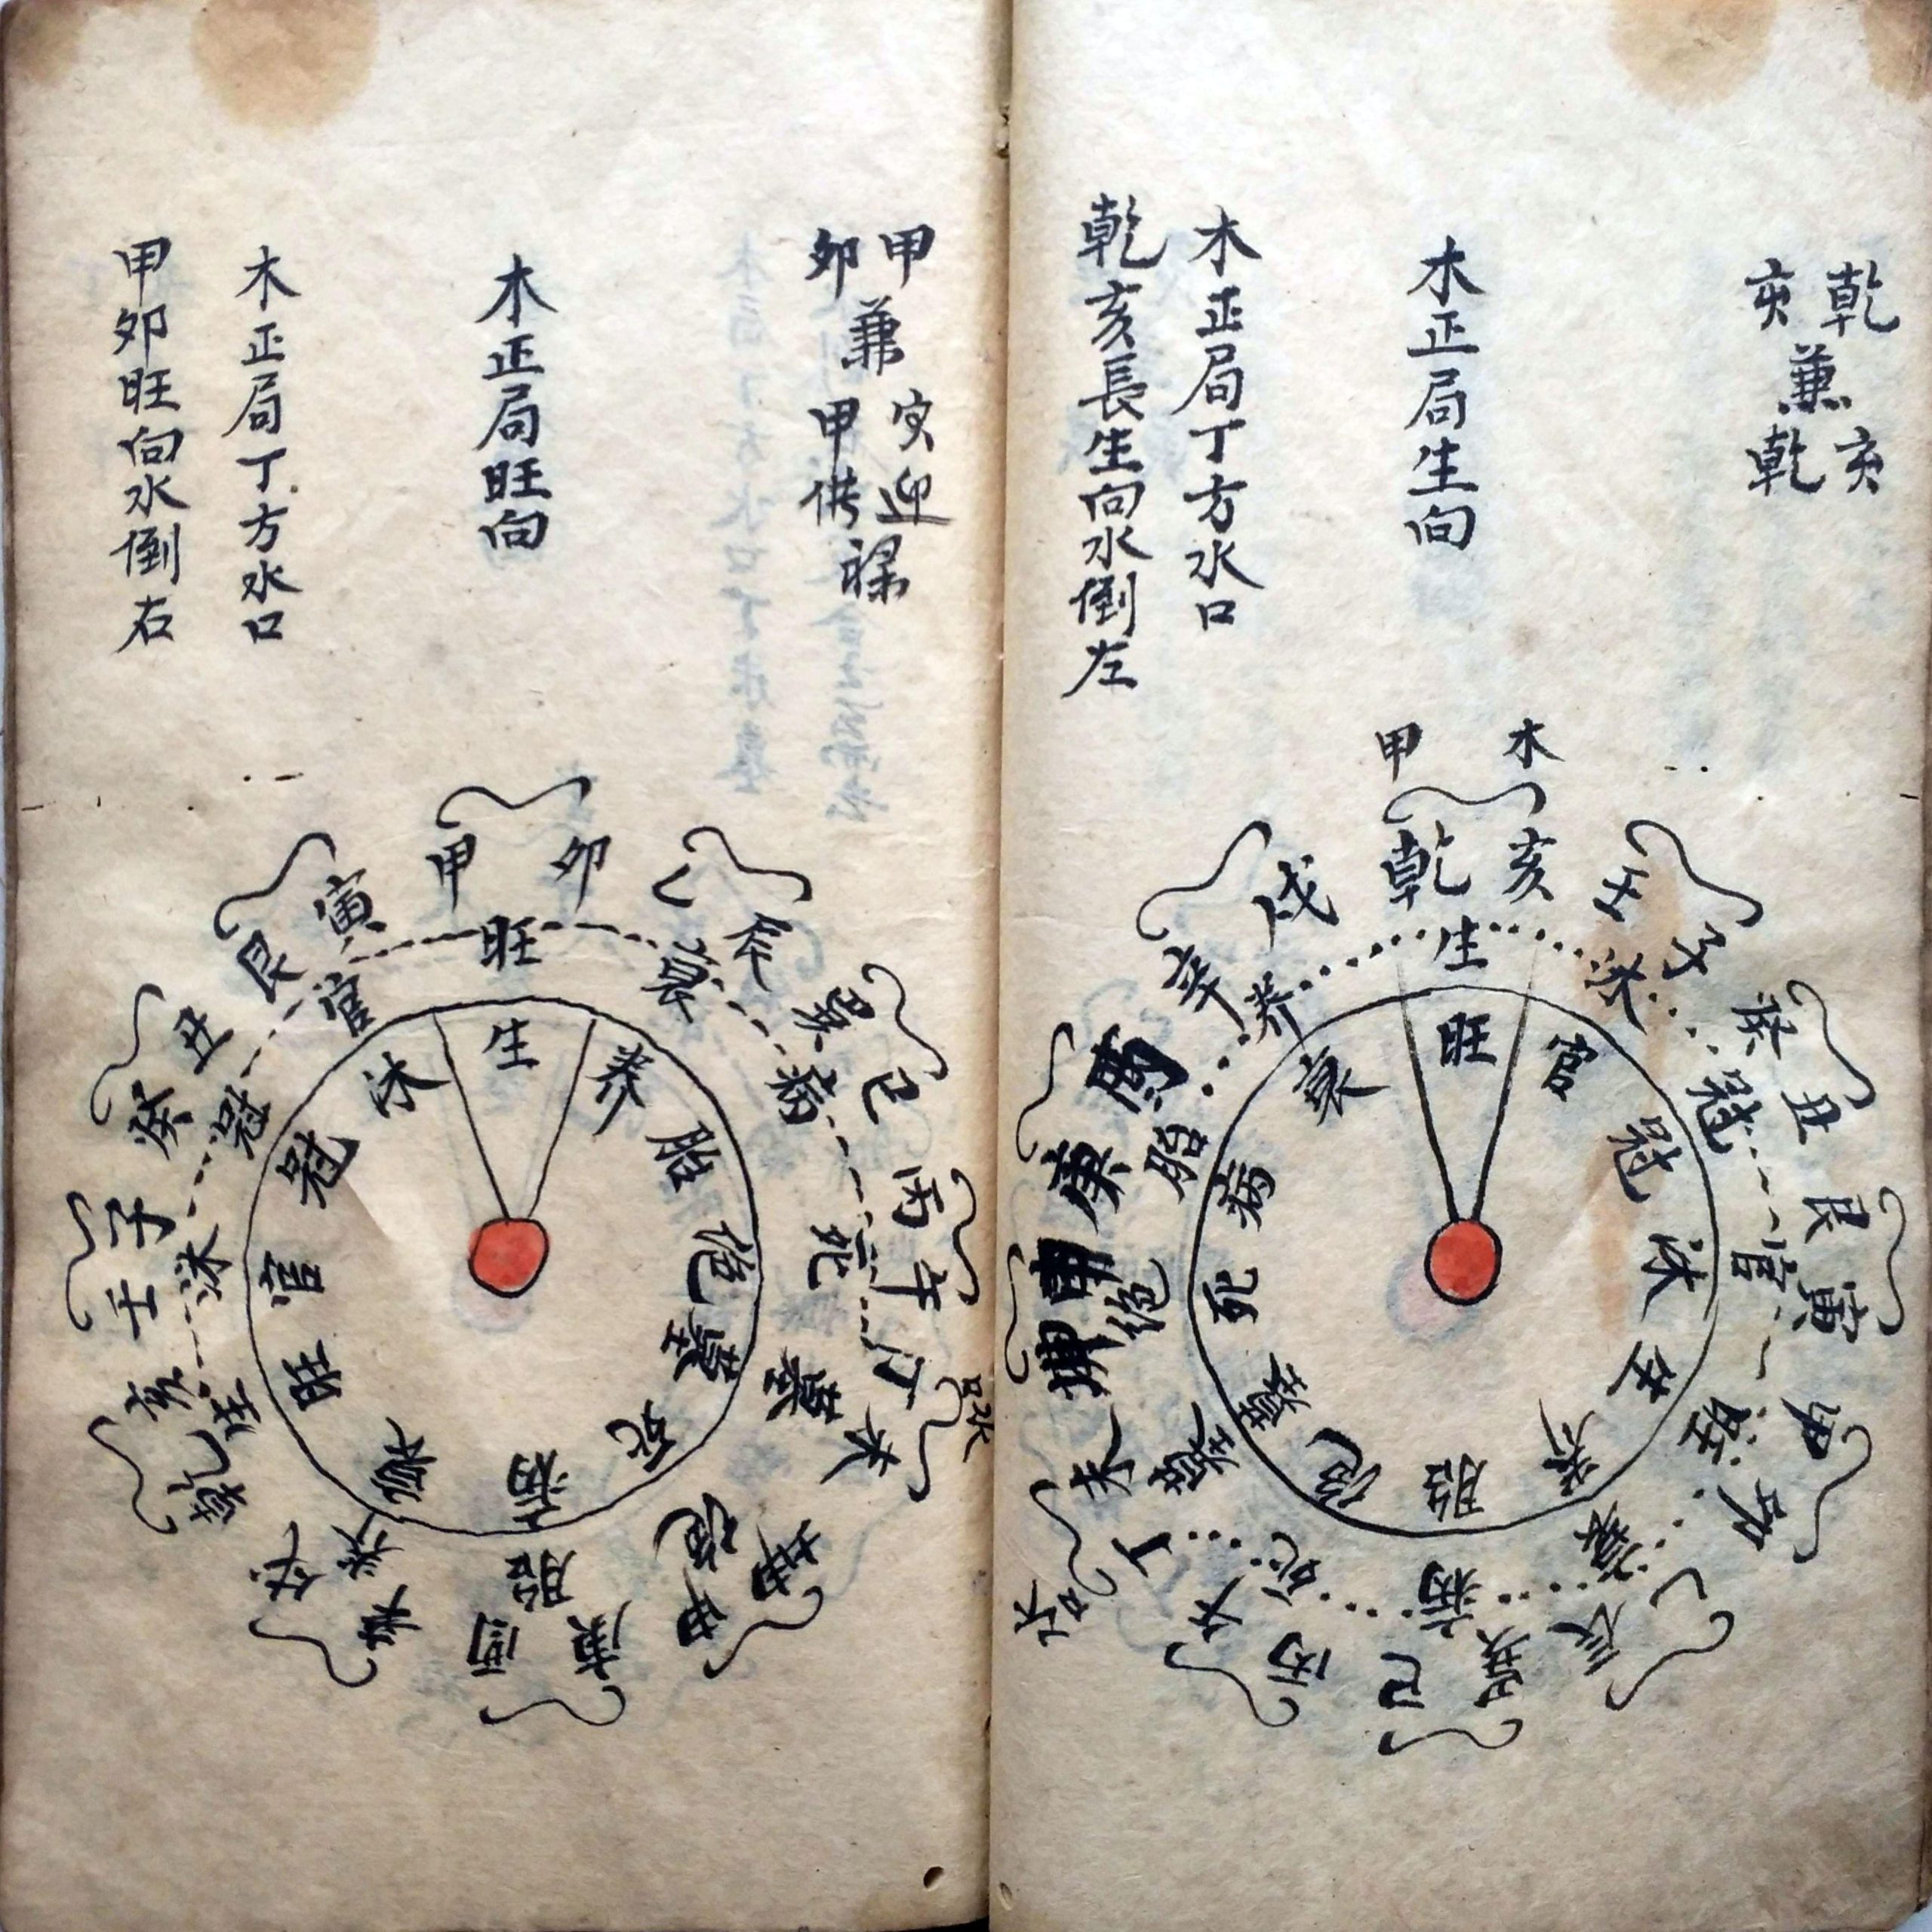 乾亥
兼
亥乾
木正局生向
木正局丁方水口
乾亥長生向水倒左
木
甲
乾 亥
壬 子
癸 丑
艮 寅
甲 卯
乙 辰
巽 巳
丙 午
丁 未
水口
坤 申
庚 酉
辛 戌
生
沐
冠
官
旺
衰
病
死
墓
絕
胎
养
旺
官
冠
沐
生
养
胎
絕
墓
死
病
衰
甲卯
兼
寅甲
迎供
祿
木正局旺向
木正局丁方水口
甲卯旺向水倒右
甲 卯
乙 辰
巽 巳
丙 午
丁 未
水口
坤 申
庚 酉
辛 戌
乾 亥
壬 子
癸 丑
艮 寅
旺
衰
病
死
墓
絕
胎
养
生
沐
冠
官
生
养
胎
絕
墓
死
病
衰
旺
官
冠
沐